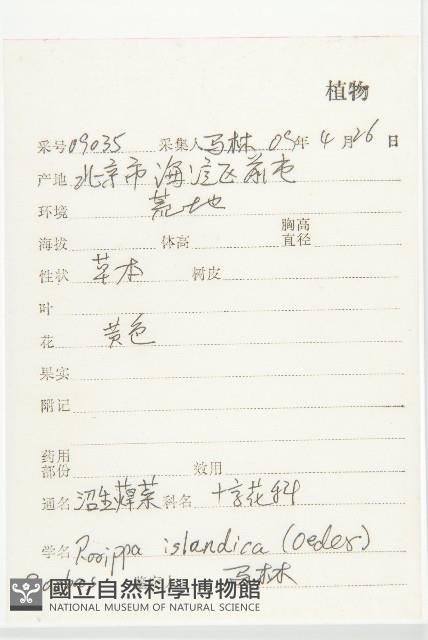 植物
采号 09035 采集人 马林 09年 4月26日
产地 北京市海淀区
环境 荒地
海拔 体高 胸高直径
性状 草本 树皮
叶
花 黄色
果实
附记
药用部份 效用
通名 沼生蔊菜 科名 十字花科
学名 Rorippa islandica (Oeder)
马林
國立自然科學博物館
NATIONAL MUSEUM OF NATURAL SCIENCE